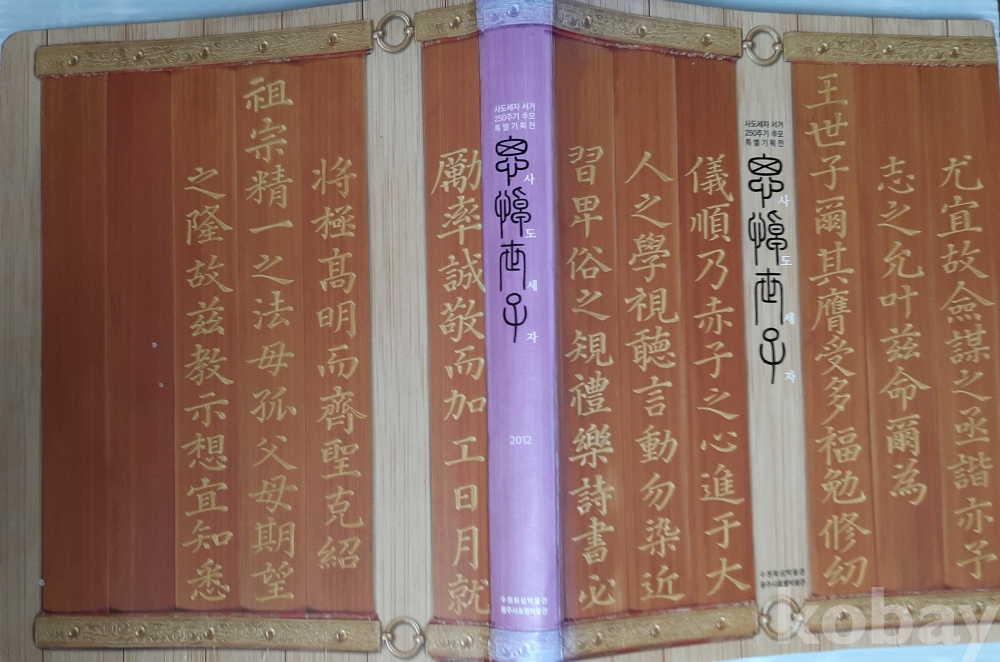 尤宜故僉謀之亟諧亦予
志之允叶玆命爾為
王世子爾其膺受多福勉修幼
사도세자 서거
250주기 추모
특별기획전
思悼世子
사도세자
수원화성박물관
용주사효행박물관
儀順乃赤子之心進于大
人之學視聽言動勿染近
習卑俗之規禮樂詩書必
사도세자 서거
250주기 추모
특별기획전
思悼世子
사도세자
2012
수원화성박물관
용주사효행박물관
勵率誠敬而加工日月就
將極高明而齊聖克紹
祖宗精一之法毋孤父母期望
之隆故玆教示想宜知悉
kobay